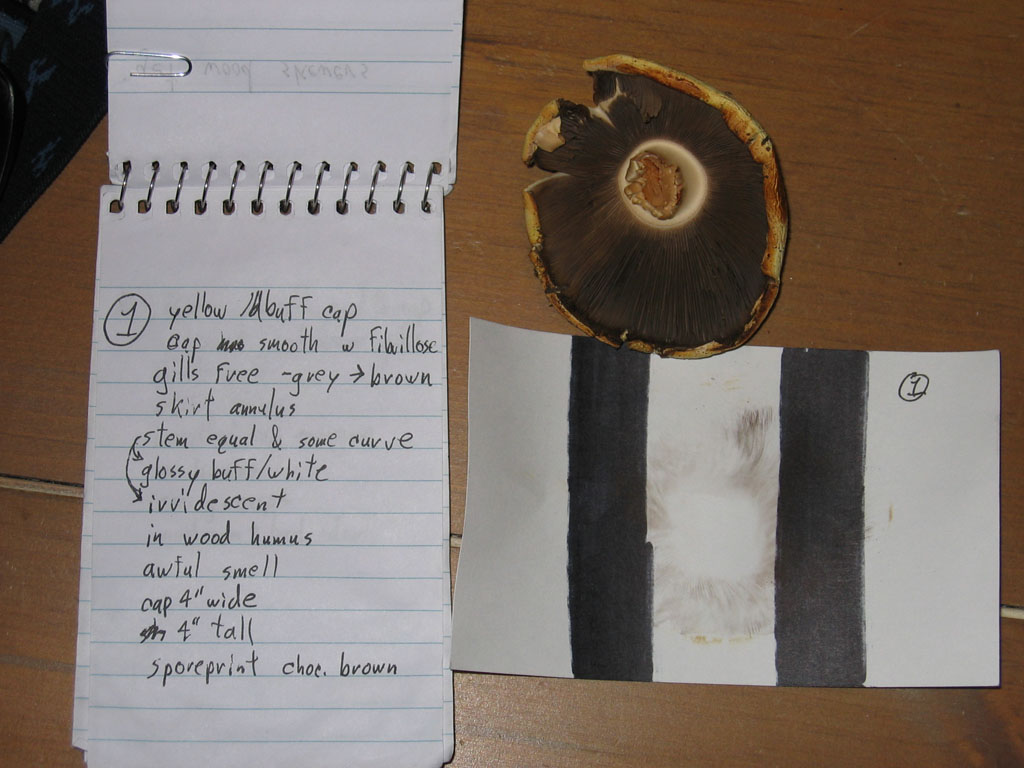 wood skewers
① yellow / buff cap
cap smooth w fibrillose
gills free - grey → brown
skirt annulus
stem equal & some curve
glossy buff/white
irridescent
in wood humus
awful smell
cap 4" wide
4" tall
sporeprint choc. brown
①